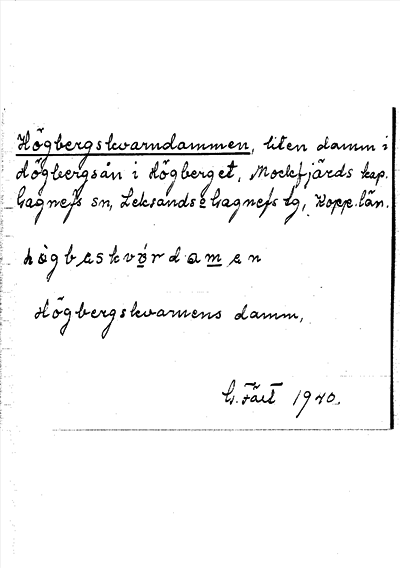 Högbergskvarndammen, liten damm i
Högbergsån i Högberget, Mockfjärds kap.
Gagnefs sn, Leksands o Gagnefs tg, Kopp. län.
högbeskvørdamen
Högbergskvarnens damm,
G. 1940.